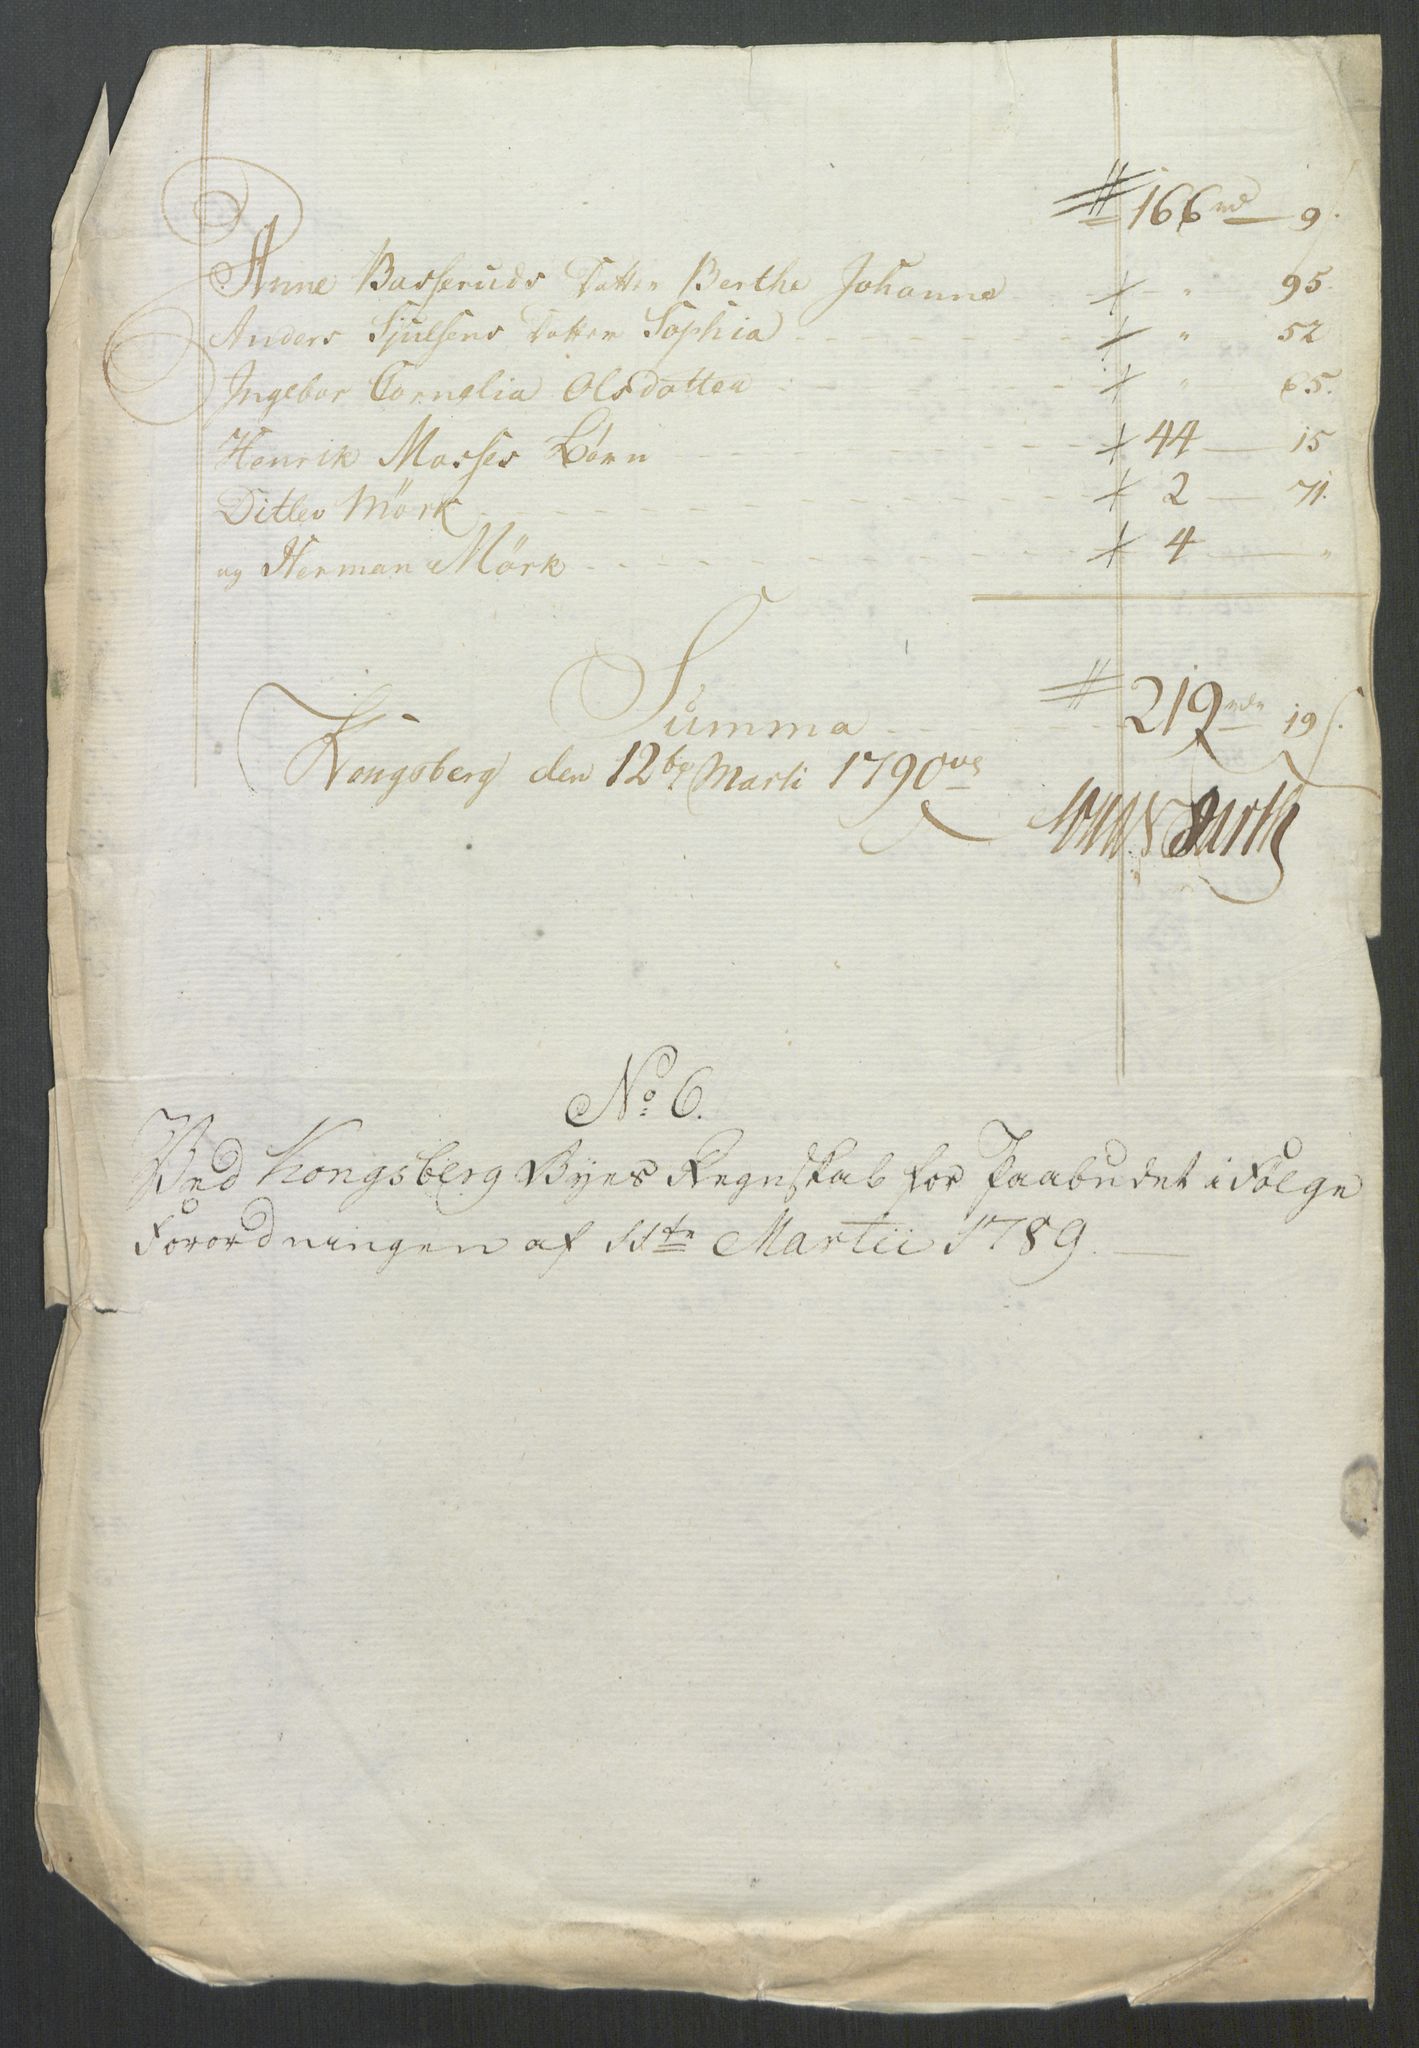 # 166 rd — 9 s.
Anne Basseruds Datter Berthe Johanne - - " 95.
Anders Sjulsens Datter Sophia - - - - - - - " 52
Ingebor Cornelia Olsdatter - - - - - " 65.
Henrik Mosses Børn - - - - - - 44 — 15
Ditlev Mörk - - - - - - - - 2 — 71.
og Herman Mörk - - - - - - - - 4 — "
Summa - - - - - # 219 rdr 19 s.
Kongsberg den 12te Marti 1790
No 6.
Ved Kongsberg Byes Regnskab for Paabudet i Følge
Forordningen af 11te Martii 1789.